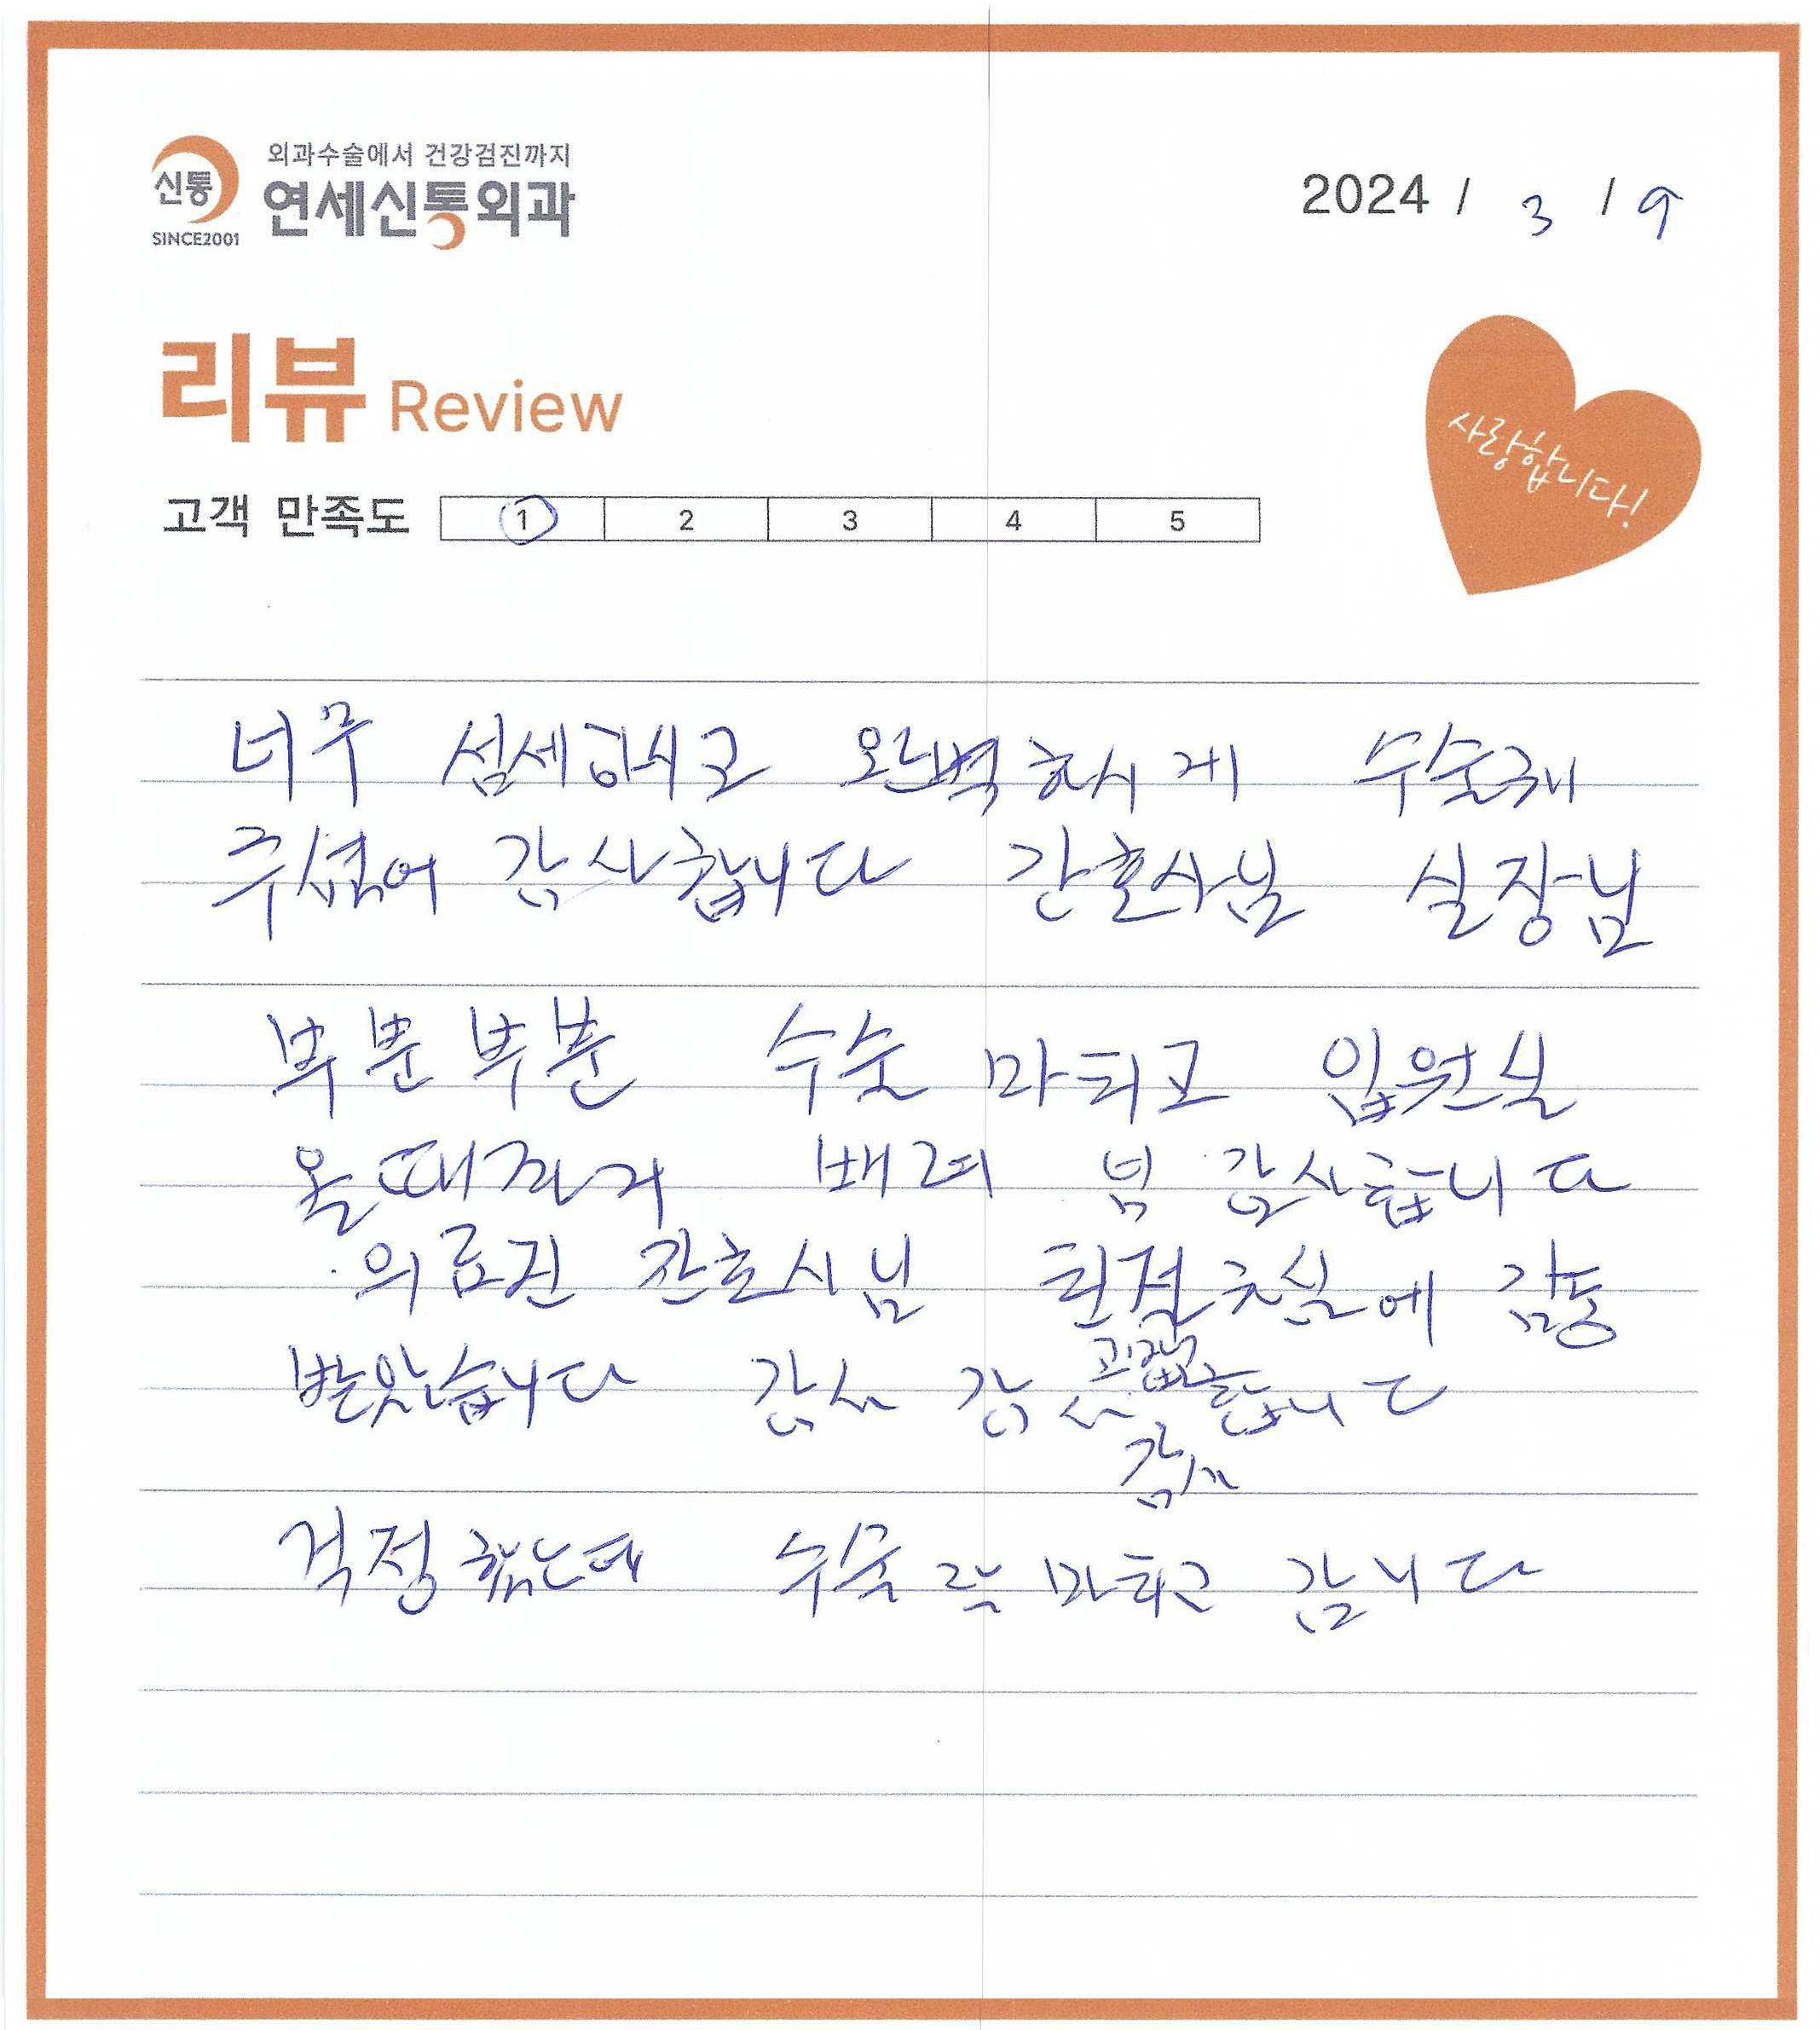 외과수술에서 건강검진까지
신통 연세신통외과
SINCE2001
2024 / 3 / 9
리뷰 Review
사랑합니다!
고객 만족도 1 2 3 4 5
너무 섬세하시고 완벽하시게 수술해
주셨어 감사합니다 간호사님 실장님
부분부분 수술 마티고 입원실
올때까지 배려 넘 감사합니다
의료진 간호사님 친절
감동
받았습니다 감사 감사합니다
감사
걱정했는데 수술 마티고 갑니다